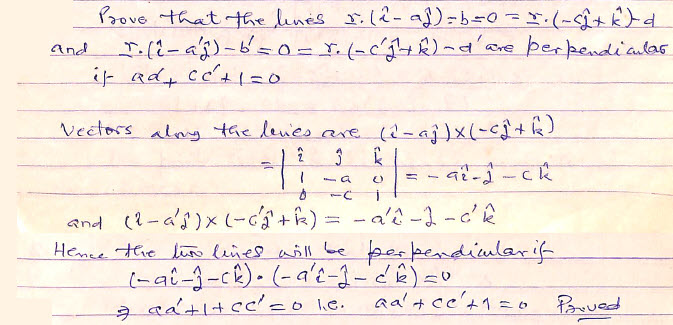 Prove that the lines r.(î-aĵ)-b=0 = r.(-cĵ+k̂)-d
and r.(î-a'ĵ)-b'=0= r.(-c'ĵ+k̂)-d' are perpendicular
if aa'+ cc'+1=0
Vectors along the lines are (î-aĵ)×(-cĵ+k̂)
= | î ĵ k̂ |
| 1 -a 0 | = -aî-ĵ-ck̂
| 0 -c 1 |
and (î-a'ĵ)×(-c'ĵ+k̂) = -a'î-ĵ-c'k̂
Hence the two lines will be perpendicular if
(-aî-ĵ-ck̂)•(-a'î-ĵ-c'k̂)=0
⇒ aa'+1+cc'=0 i.e. aa'+cc'+1=0 Proved